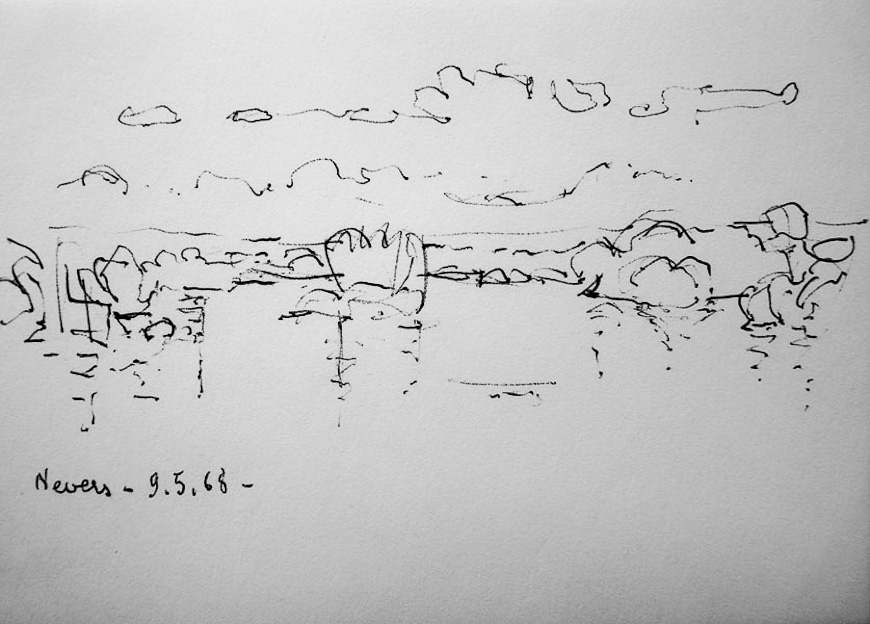 Nevers - 9.5.68 -